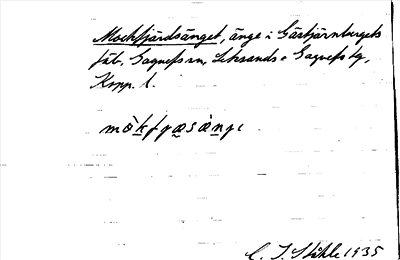 Mockfjärdsänget, änge i Gästjärnbergets
fäb. Gagnefs sn, Leksands o Gagnefs tg,
Kopp. l.
C. I. Ståhle 1935